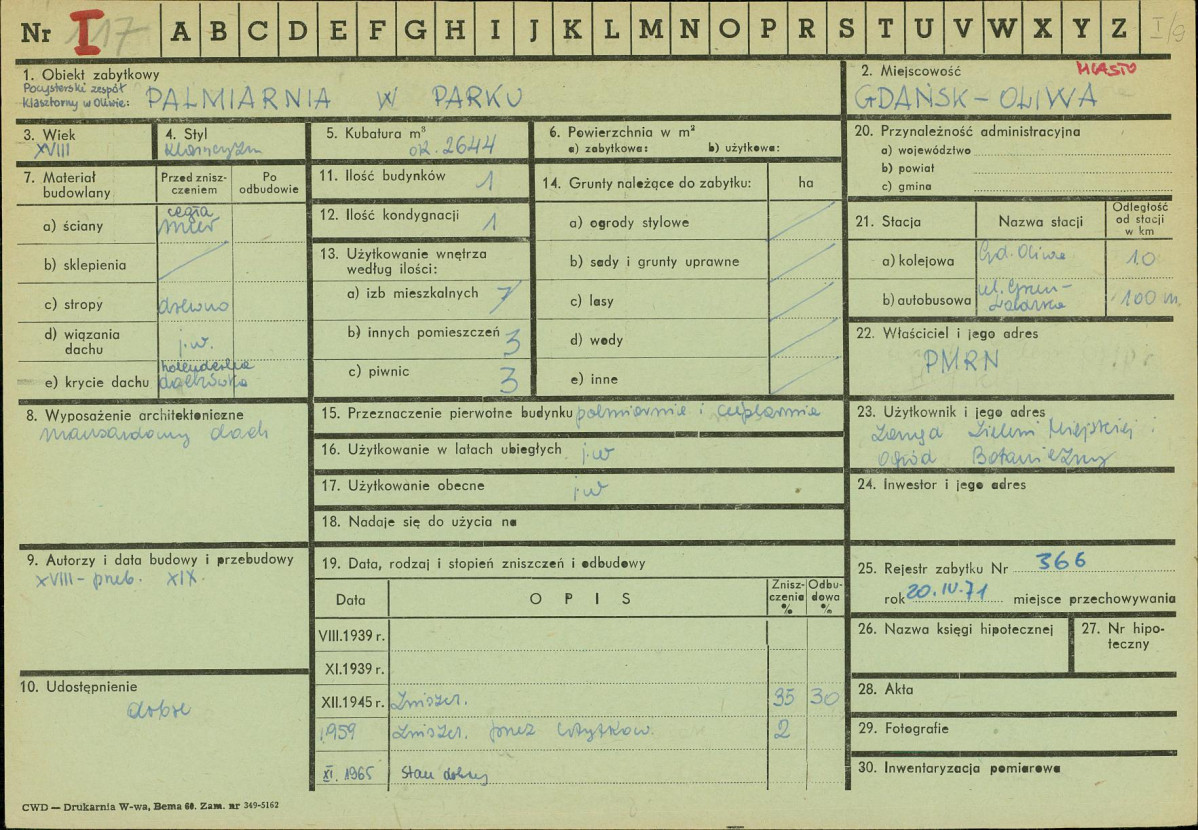 Nr 117 I A B C D E F G H I J K L M N O P R S T U V W X Y Z I/9
1. Obiekt zabytkowy
Pocysterski zespół
Klasztorny w Oliwie: PALMIARNIA W PARKU
2. Miejscowość MIASTO
GDAŃSK-OLIWA
3. Wiek
XVIII
4. Styl
klasycyzm
5. Kubatura m³
ok. 2644
6. Powierzchnia w m²
a) zabytkowa: b) użytkowa:
7. Materiał budowlany
Przed zniszczeniem
Po odbudowie
a) ściany cegła mur
b) sklepienia
c) stropy drewno
d) wiązania dachu j.w.
e) krycie dachu holenderka dachówka
8. Wyposażenie architektoniczne
mansardowy dach
9. Autorzy i data budowy i przebudowy
XVIII - przeb. XIX.
10. Udostępnienie
dobre
11. Ilość budynków 1
12. Ilość kondygnacji 1
13. Użytkowanie wnętrza według ilości:
a) izb mieszkalnych 7
b) innych pomieszczeń 3
c) piwnic 3
14. Grunty należące do zabytku: ha
a) ogrody stylowe
b) sady i grunty uprawne
c) lasy
d) wody
e) inne
15. Przeznaczenie pierwotne budynku palmiarnia i cieplarnia
16. Użytkowanie w latach ubiegłych j.w
17. Użytkowanie obecne j.w
18. Nadaje się do użycia na
19. Data, rodzaj i stopień zniszczeń i odbudowy
Data OPIS Zniszczenia % Odbudowa %
VIII.1939 r.
XI.1939 r.
XII.1945 r. Zniszcz. 35 30
1959 Zniszcz. przez użytkow. 2
XI. 1965 Stan dobry
20. Przynależność administracyjna
a) województwo
b) powiat
c) gmina
21. Stacja Nazwa stacji Odległość od stacji w km
a) kolejowa Gd. Oliwa 1.0
b) autobusowa 100 m.
22. Właściciel i jego adres
PMRN
23. Użytkownik i jego adres
Zieleni Miejskiej i
Ogród Botaniczny
24. Inwestor i jego adres
25. Rejestr zabytku Nr 366
rok 20.IV.71 miejsce przechowywania
26. Nazwa księgi hipotecznej
27. Nr hipoteczny
28. Akta
29. Fotografie
30. Inwentaryzacja pomiarowa
CWD — Drukarnia W-wa, Bema 60. Zam. nr 349-5162